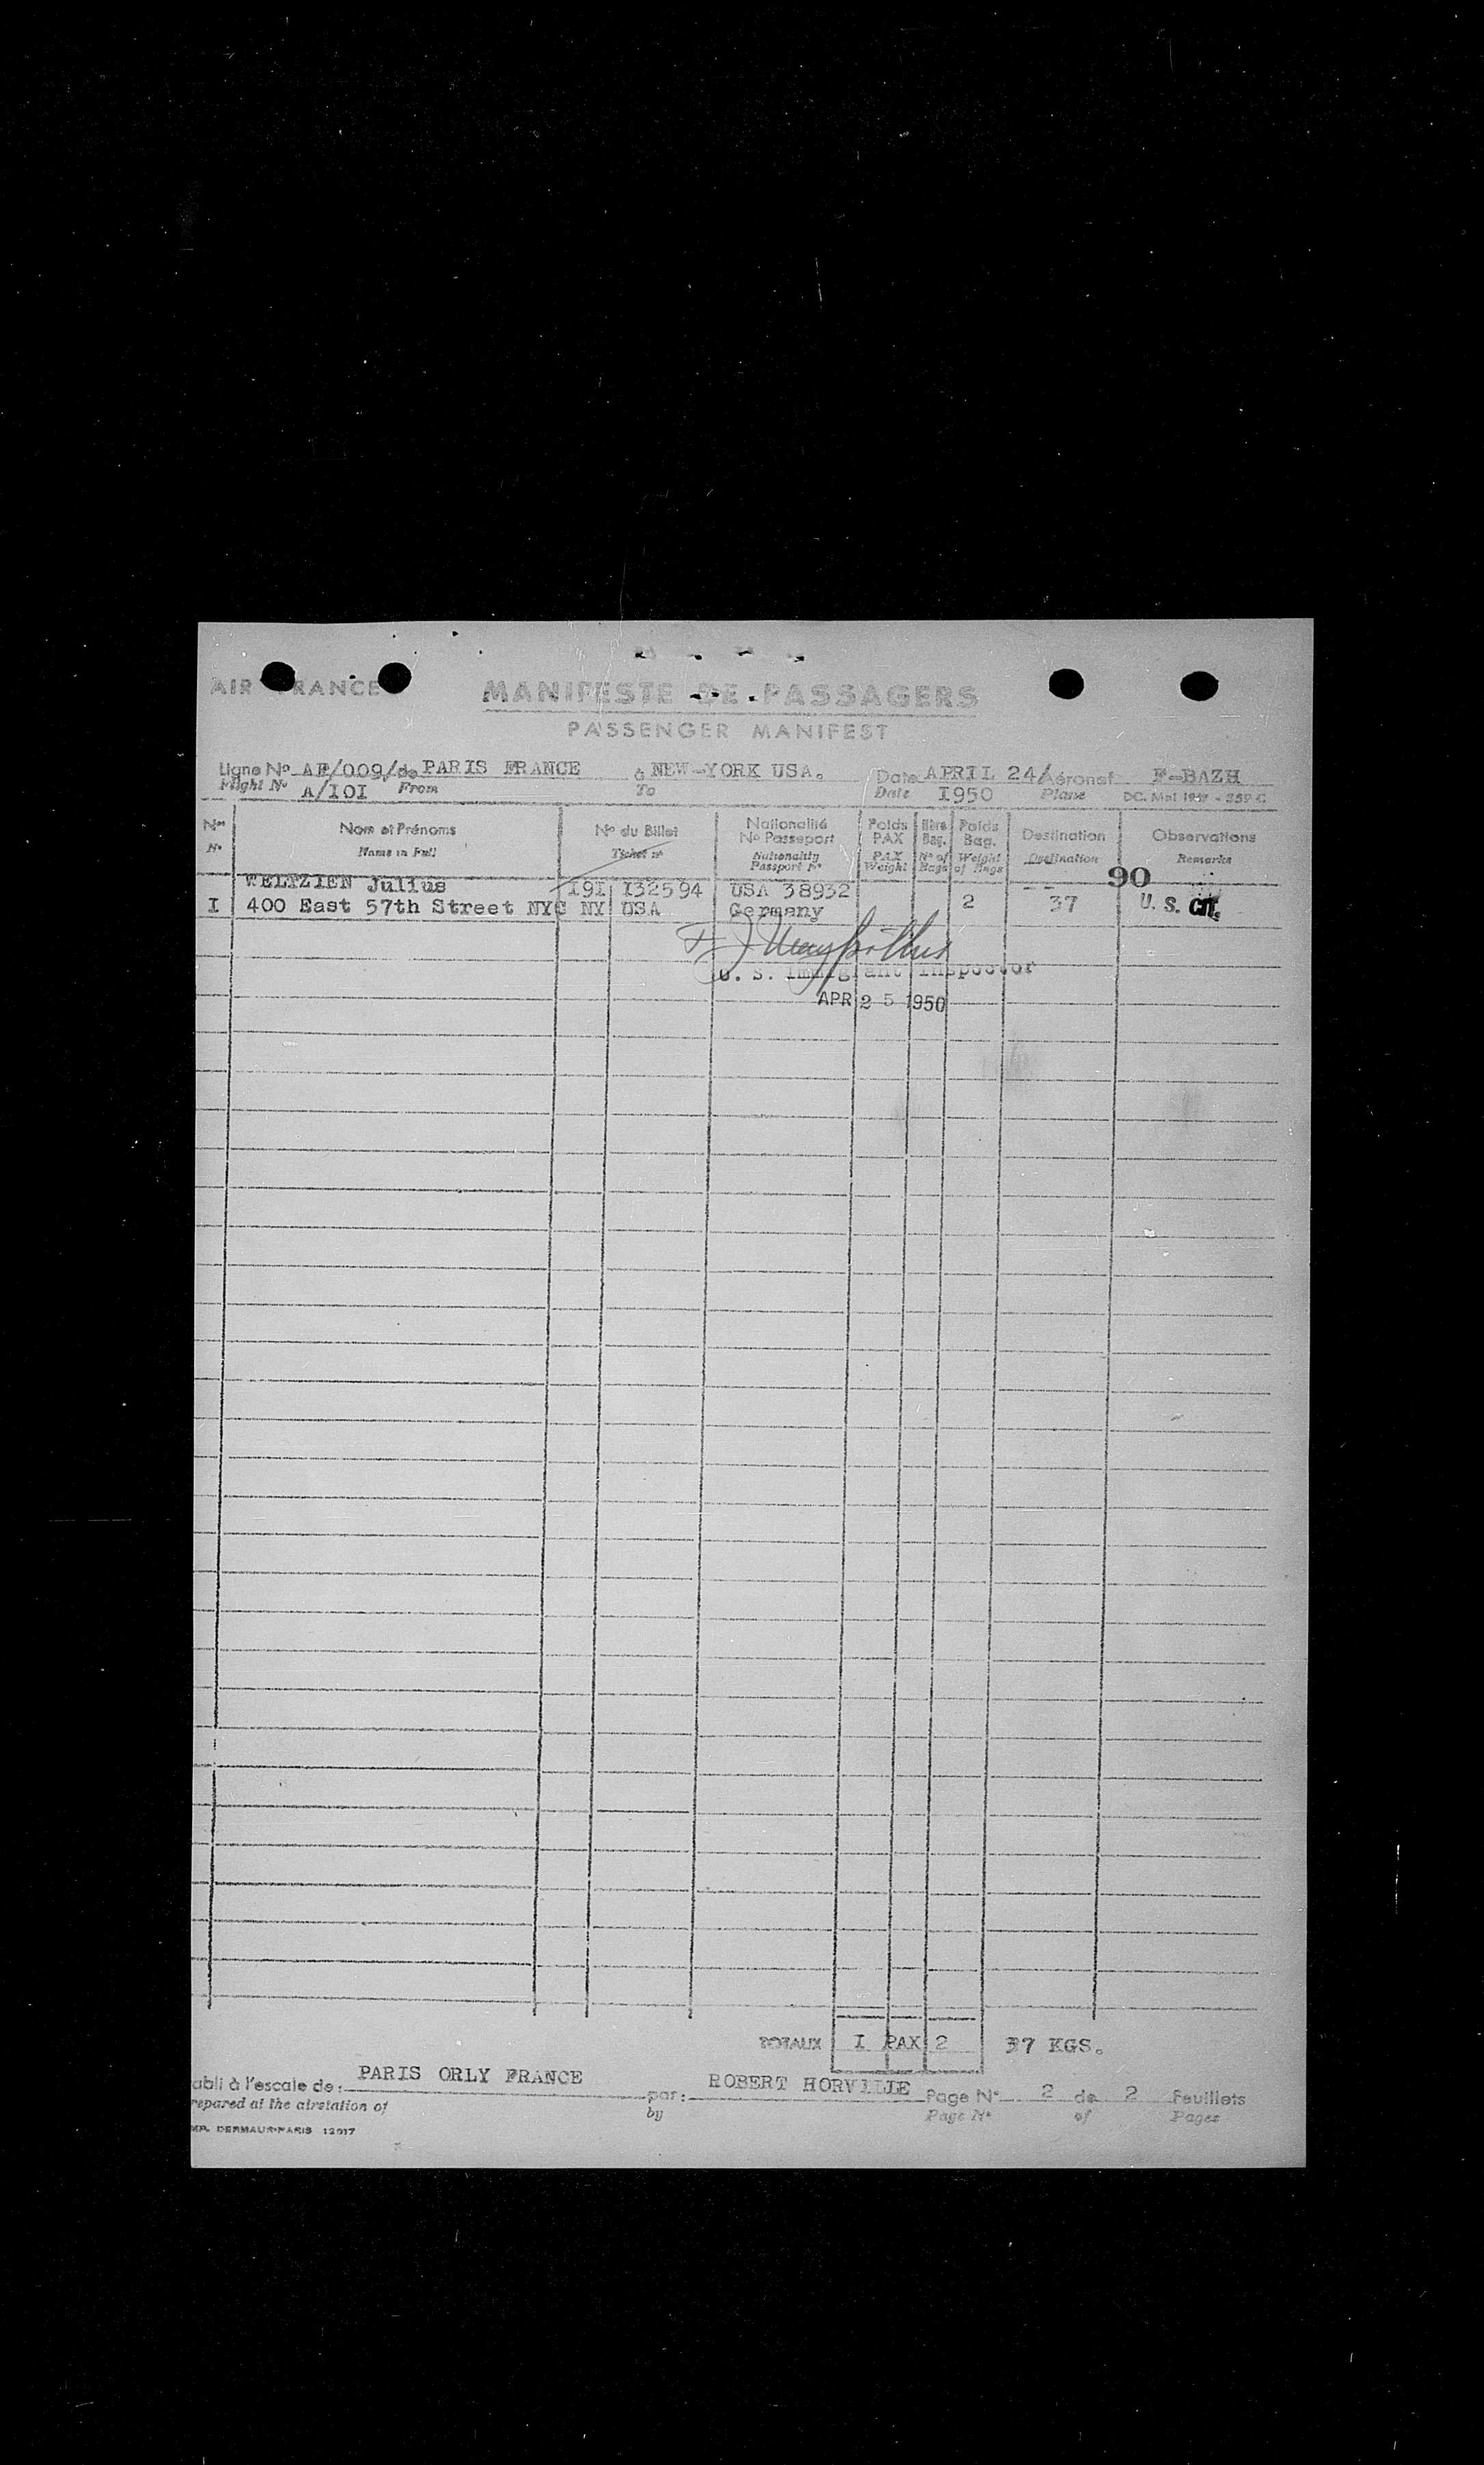 AIR FRANCE
MANIFESTE DE PASSAGERS
PASSENGER MANIFEST
Ligne No AF/009/de PARIS FRANCE à NEW-YORK USA. Date APRIL 24/Aéronef F-BAZH
Flight No A/IOI From To Date I950 Plane DC. Mel
Nos Nom et Prénoms No du Billet Nationalité No Passeport Poids PAX Bag. Poids Bag. Destination Observations
No Name in Full Ticket no Nationality Passport No PAX Weight No of Bags Weight of Bags Destination Remarks
90
WELTZIEN Julius I9I I32594 USA 38932
I 400 East 57th Street NYC NY USA Germany 2 37 U. S. CIT.
U. S. Immigrant Inspector
APR 25 1950
TOTAUX I PAX 2 37 KGS.
abli à l'escale de: PARIS ORLY FRANCE par: ROBERT HORVILLE Page No 2 de 2 Feuillets
repared at the airstation of by Page No of Pages
MP. DERMAUR-PARIS 12017